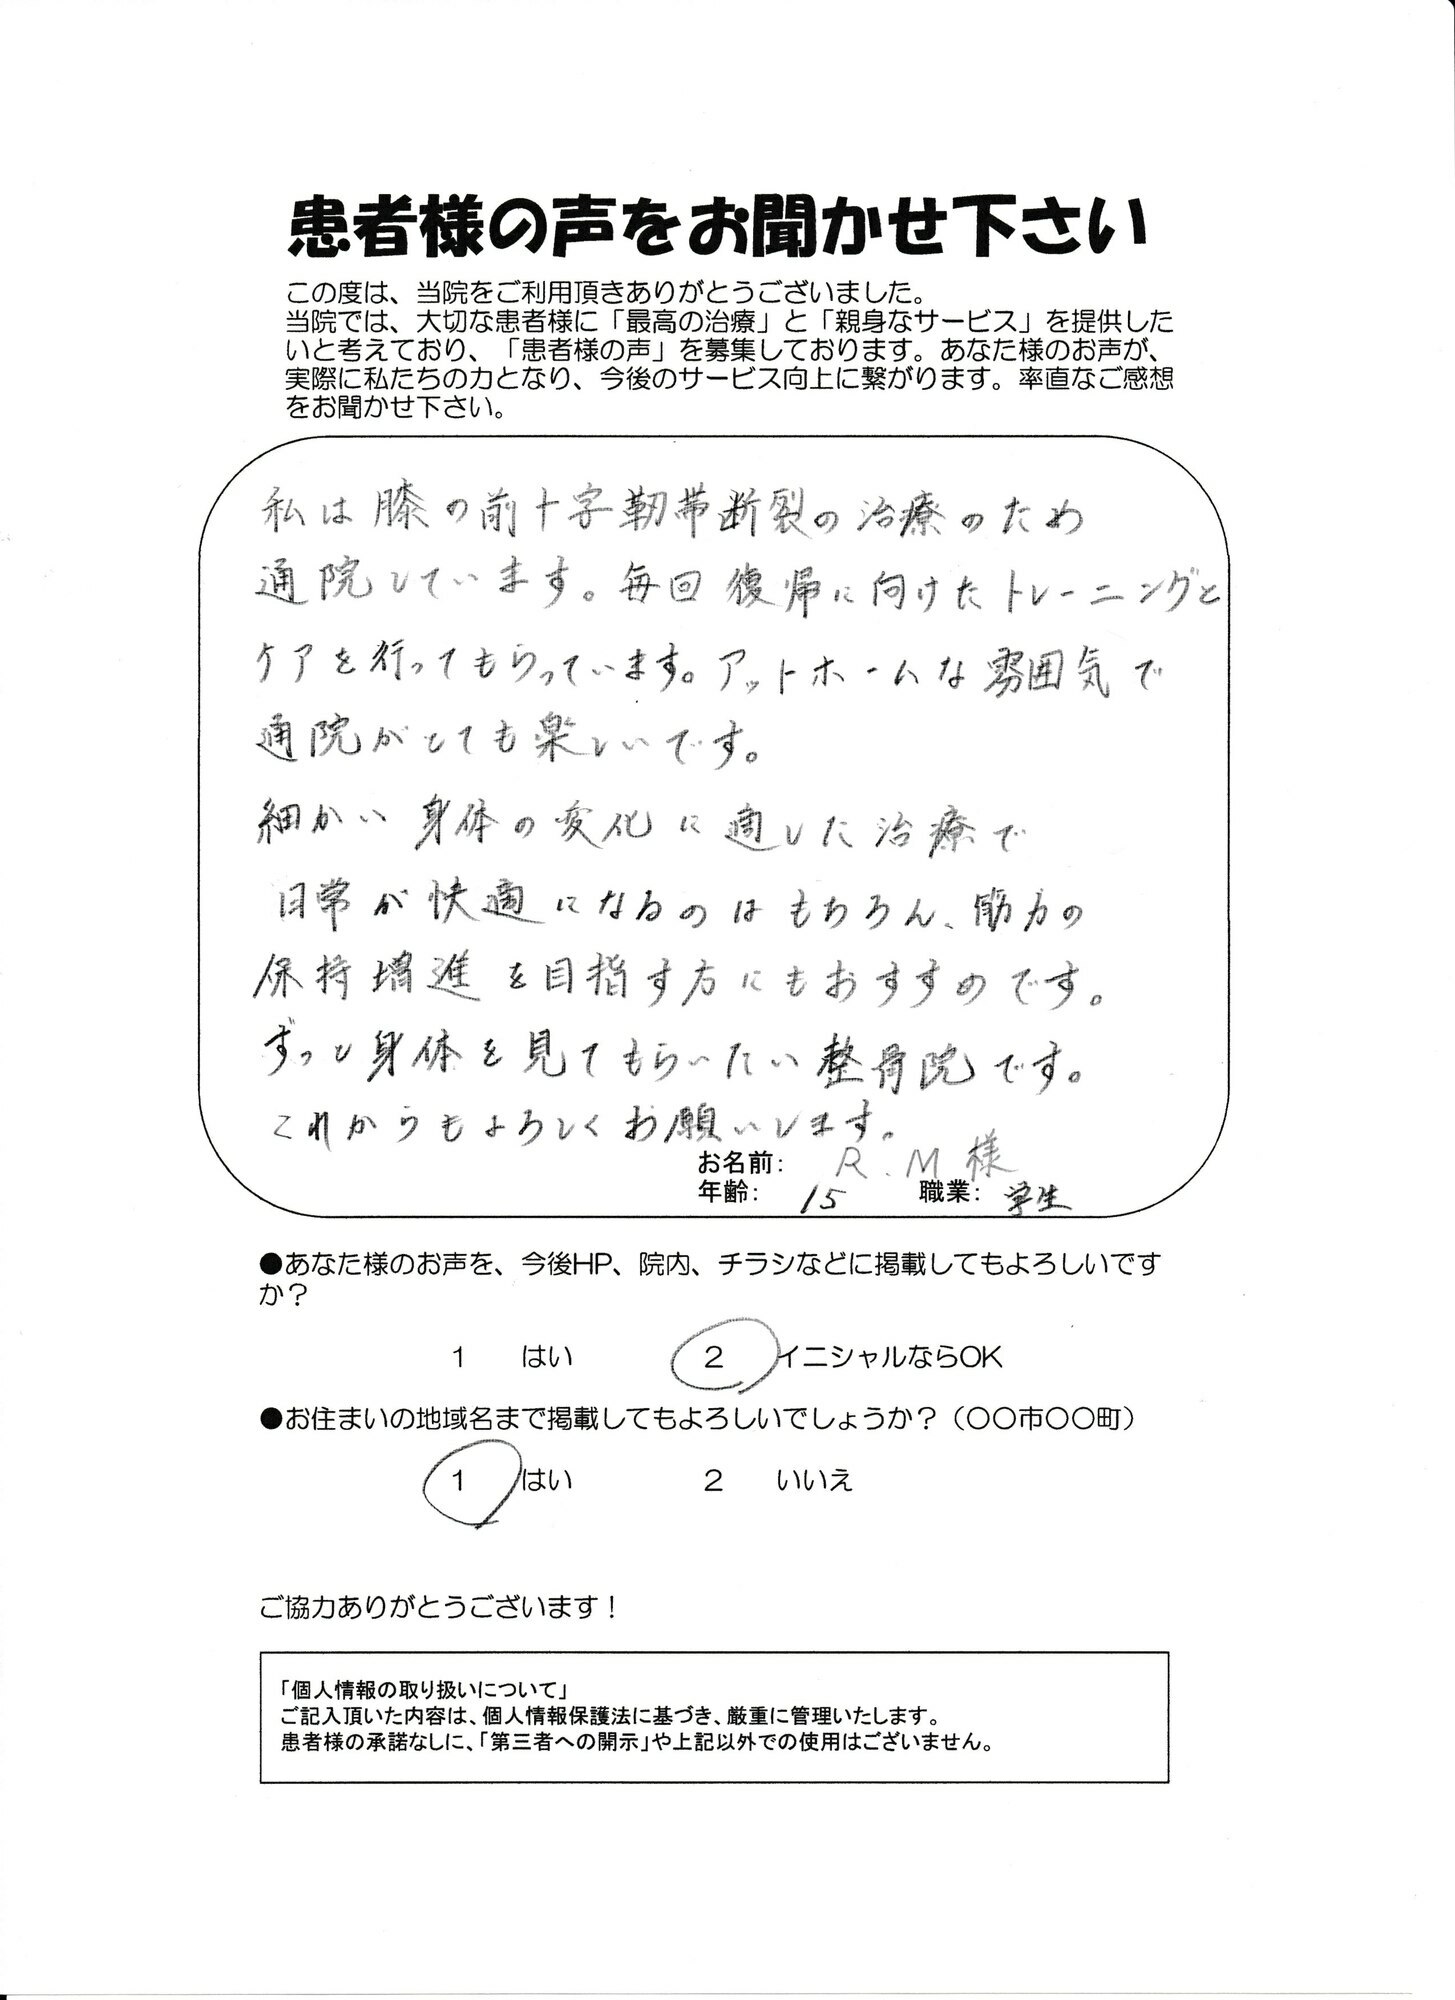 患者様の声をお聞かせ下さい
この度は、当院をご利用頂きありがとうございました。
当院では、大切な患者様に「最高の治療」と「親身なサービス」を提供した
いと考えており、「患者様の声」を募集しております。あなた様のお声が、
実際に私たちの力となり、今後のサービス向上に繋がります。率直なご感想
をお聞かせ下さい。
私は膝の前十字靭帯断裂の治療のため
通院しています。毎回復帰に向けたトレーニングと
ケアを行ってもらっています。アットホームな雰囲気で
通院がとても楽しいです。
細かい身体の変化に適した治療で
日常が快適になるのはもちろん、筋力の
保持増進を目指す方にもおすすめです。
ずっと身体を見てもらいたい整骨院です。
これからもよろしくお願いします。
お名前: R.M様
年齢: 15 職業: 学生
●あなた様のお声を、今後HP、院内、チラシなどに掲載してもよろしいです
か？
1 はい 2 イニシャルならOK
●お住まいの地域名まで掲載してもよろしいでしょうか？（〇〇市〇〇町）
1 はい 2 いいえ
ご協力ありがとうございます！
「個人情報の取り扱いについて」
ご記入頂いた内容は、個人情報保護法に基づき、厳重に管理いたします。
患者様の承諾なしに、「第三者への開示」や上記以外での使用はございません。